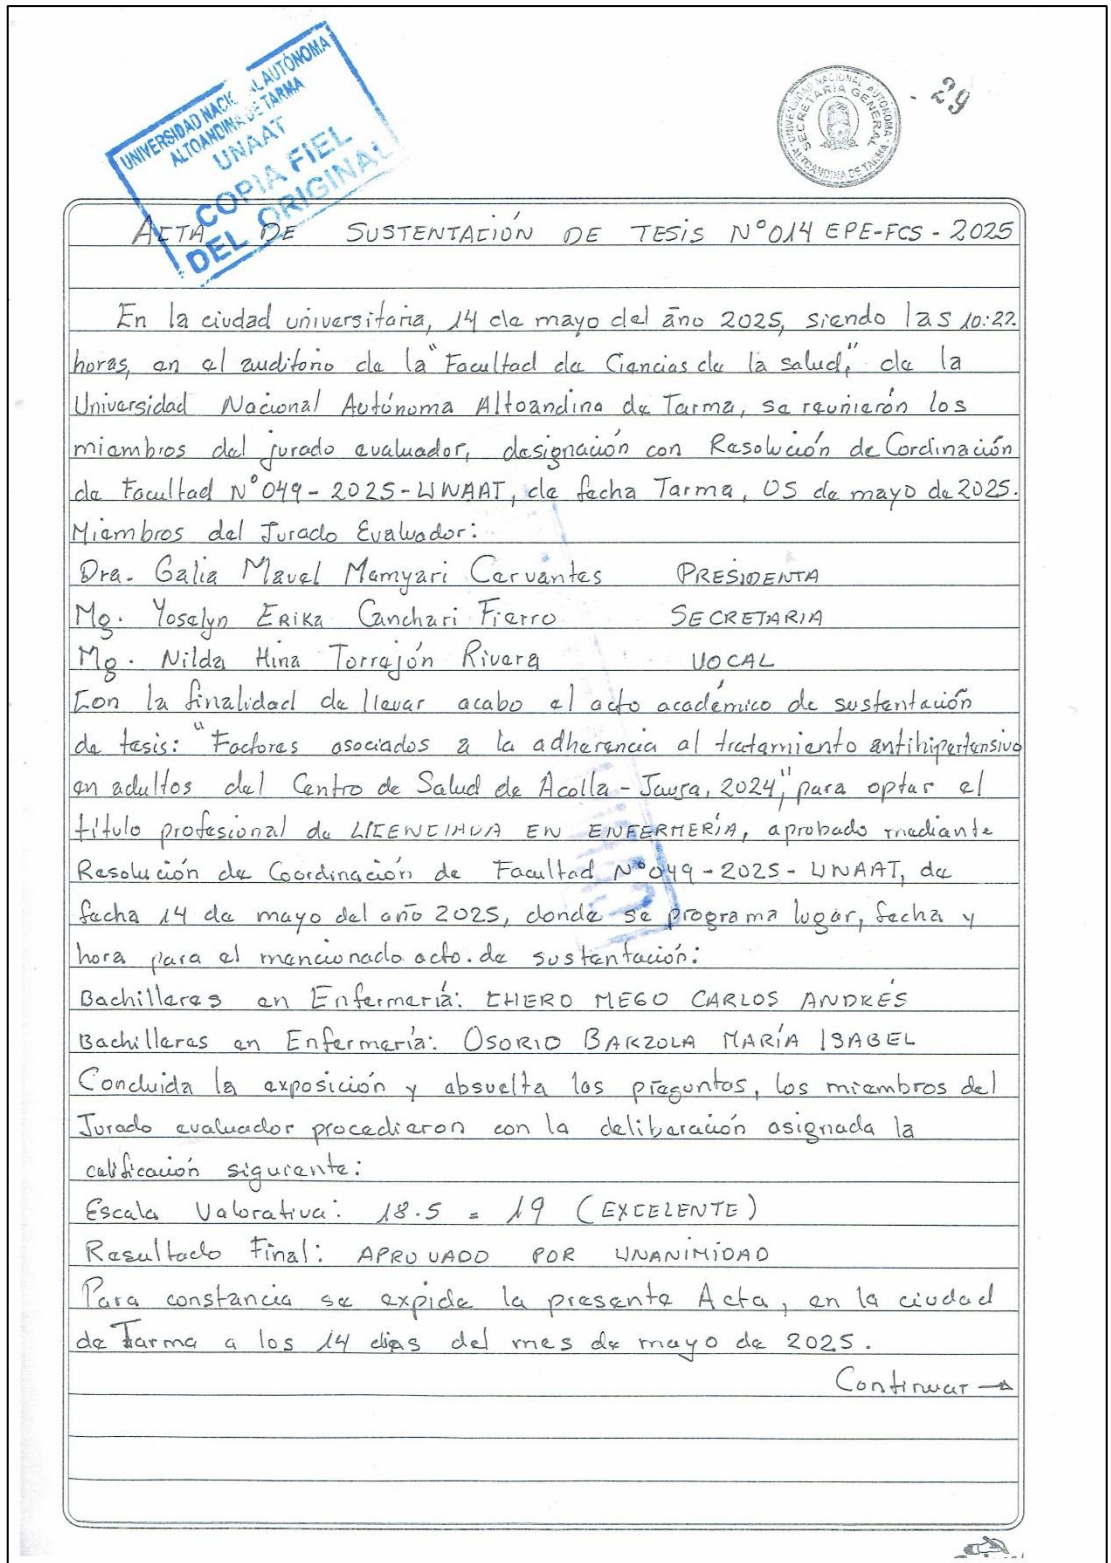 UNIVERSIDAD NACIONAL AUTÓNOMA
ALTOANDINA DE TARMA
UNAAT
COPIA FIEL
DEL ORIGINAL
UNIVERSIDAD NACIONAL AUTONOMA
SECRETARIA GENERAL
ALTOANDINA DE TARMA
- 29
ACTA DE SUSTENTACIÓN DE TESIS N°014 EPE-FCS - 2025
En la ciudad universitaria, 14 de mayo del año 2025, siendo las 10:22
horas, en el auditorio de la "Facultad de Ciencias de la salud," de la
Universidad Nacional Autónoma Altoandina de Tarma, se reunierón los
miembros del jurado evaluador, designación con Resolución de Cordinación
de Facultad N°049 - 2025 - UNAAT, de fecha Tarma, 05 de mayo de 2025.
Miembros del Jurado Evaluador:
Dra. Galia Mavel Mamyari Cervantes PRESIDENTA
Mg. Yoselyn ERIKA Canchari Fierro SECRETARIA
Mg. Nilda Hina Torrejón Rivera VOCAL
Con la finalidad de llevar acabo el acto académico de sustentación
de tesis: "Factores asociados a la adherencia al tratamiento antihipertensivo
en adultos del Centro de Salud de Acolla - Jauja, 2024", para optar el
título profesional de LICENCIADA EN ENFERMERÍA, aprobado mediante
Resolución de Coordinación de Facultad N°049 - 2025 - UNAAT, de
fecha 14 de mayo del año 2025, donde se programa lugar, fecha y
hora para el mencionado acto. de sustentación:
Bachilleres en Enfermería: CHERO MEGO CARLOS ANDRÉS
Bachilleres en Enfermería: OSORIO BARZOLA MARÍA ISABEL
Concluida la exposición y absuelta las preguntas, los miembros del
Jurado evaluador procedieron con la deliberación asignada la
calificación siguiente:
Escala Valorativa: 18.5 = 19 (EXCELENTE)
Resultado Final: APROVADO POR UNANIMIDAD
Para constancia se expide la presente Acta, en la ciudad
de Tarma a los 14 dias del mes de mayo de 2025.
Continuar →